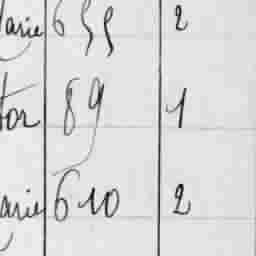 arie 655 2
tor 89 1
arie 610 2